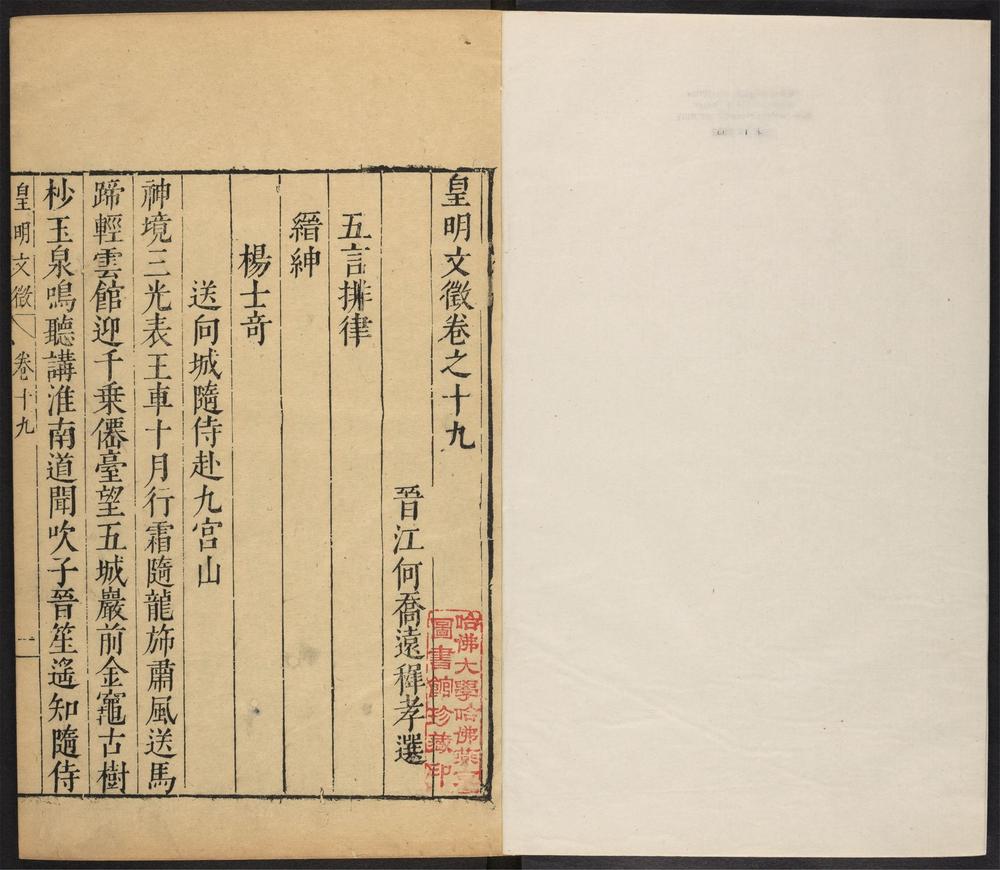 皇明文徵卷之十九
晉江何喬遠稺孝選
五言排律
縉紳
楊士奇
送向城隨侍赴九宮山
神境三光表王車十月行霜隨龍斾肅風送馬
蹄輕雲館迎千乗僊臺望五城巖前金竈古樹
杪玉泉鳴聽講淮南道聞吹子晉笙遙知隨侍
皇明文徵
卷十九
一
哈佛大學哈佛燕京
圖書館珍藏印